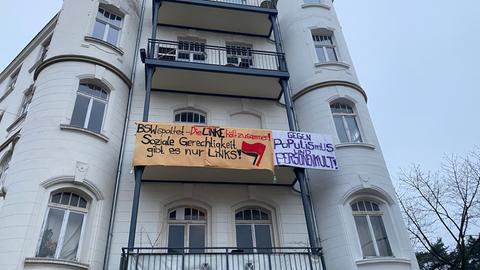 BSW spaltet - Die LINKE hält zusammen!
Soziale Gerechtigkeit
gibt es nur LINKS!
GEGEN
POPULISMUS
UND
PERSONENKULT!